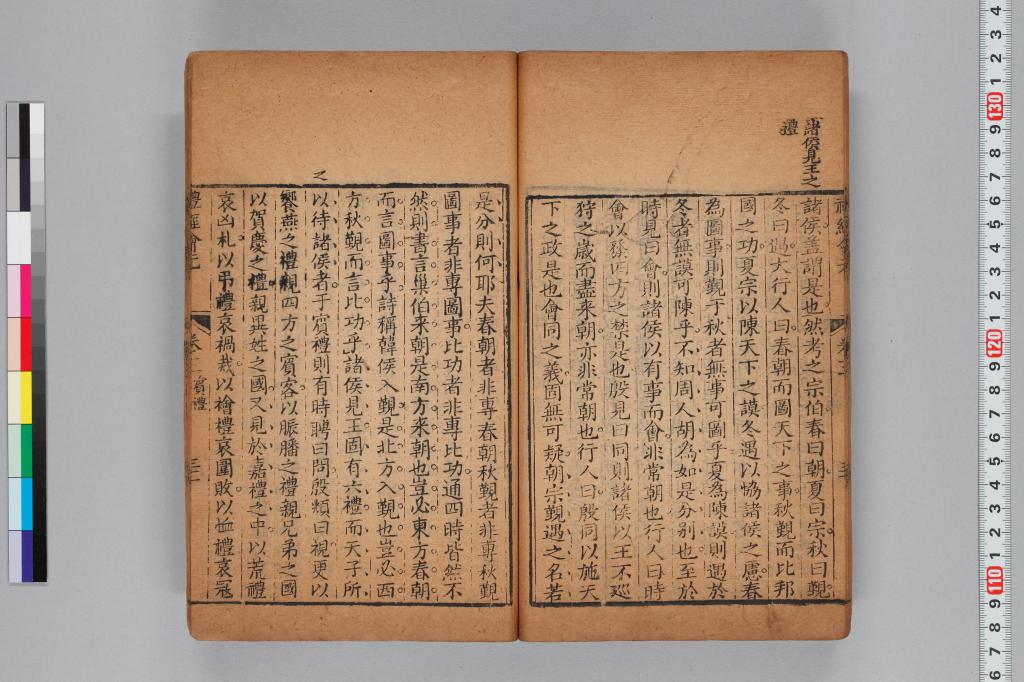 諸侯見王之
禮
諸侯盖謂是也然考之宗伯春曰朝夏曰宗秋曰覲
冬曰遇大行人曰春朝而圖天下之事秋覲而比邦
國之功夏宗以陳天下之謨冬遇以恊諸侯之慮春
為圖事則覲于秋者無事可圖乎夏為陳謨則遇於
冬者無謨可陳乎不知周人胡為如是分别也至於
時見曰會則諸侯以有事而會非常朝也行人曰時
會以發四方之禁是也殷見曰同則諸侯以王不巡
狩之歲而盡来朝亦非常朝也行人曰殷同以施天
下之政是也會同之義固無可疑朝宗覲遇之名若
是分則何耶夫春朝者非專春朝秋覲者非專秋覲
圖事者非專圖事比功者非專比功通四時皆然不
然則書言巢伯来朝是南方来朝也豈必東方春朝
而言圖事乎詩稱韓侯入覲是北方入覲也豈必西
方秋覲而言比功乎諸侯見王固有六禮而天子所
之
以待諸侯者于賔禮則有時聘曰問殷頫曰視更以
饗燕之禮親四方之賔客以脤膰之禮親兄弟之國
以賀慶之禮親異姓之國又見於嘉禮之中以荒禮
哀凶札以弔禮哀禍烖以禬禮哀圍敗以恤禮哀冦
禮經會元
卷二
賔禮